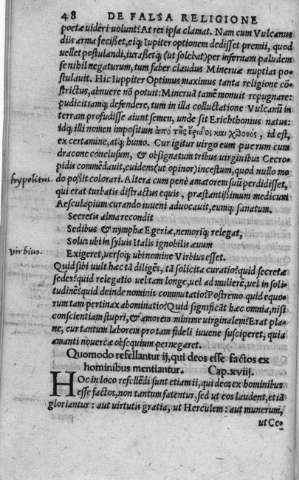 48 DE FALSA RELIGIONE
poetæ uideri uolunt? At res ipsa clamat. Nam cum Vulcanus
diis arma fecisset, eiq; Iupiter optionem dedisset premii, quod
uellet postulandi, iurassetq; (ut solebat) per infernam paludem
se nihil negaturum, tum faber claudus Mineruæ nuptias po
stulauit. Hic Iuppiter Optimus maximus tanta religione cō
strictus, abnuere nō potuit: Mineruā tamē monuit repugnare:
pudicitiamq; defendere, tum in illa colluctatione Vulcanū in
terram profudisse aiunt semen, unde sit Erichthonius natus:
idq; illi nomen impositum ἀπὸ τῆς ἔριδος καὶ χθονός, id est,
ex certamine, atq; humo. Cur igitur uirgo eum puerum cum
dracone conclusum, & obsignatum tribus uirginibus Cecro-
pidis cōmēdauit, euidens (ut opinor) incestum, quod nullo mo
hyppolitus do possit colorari. Altera cum penè amatorem suū perdidisset,
qui erat turbatis distractus equis, præstantissimum medicum
Aesculapium curando iuueni aduocauit, eumq; sanatum.
Secretis alma recondit
Sedibus & nymphæ Egeriæ, nemoriq; relegat,
Solus ubi in syluis Italis ignobilis æuum
virbius. Exigeret, uersoq; ubi nomine Virbius esset.
Quid sibi uult hæc tā diligēs, tā solicita curatio? quid secretæ
sedes? quid relegatio uel tam longe, uel ad mulierē, uel in soli-
tudinē? quid deinde nominis commutatio? Postremo quid equo-
rum tam pertinax abominatio? Quid significāt hæc omnia, nisi
conscientiam stupri, & amorem minime uirginalem? Erat pla-
ne, cur tantum laborem pro tam fideli iuuene susciperet, quia
amanti nouercæ obsequium pernegaret.
Quomodo refellantur ij, qui deos esse factos ex
hominibus mentiantur. Cap. xvij.
HOc in loco refellēdi sunt etiam ii, qui deos ex hominibus
esse factos, non tantum fatentur, sed ut eos laudent, etiā
gloriantur: aut uirtutis gratia, ut Herculem: aut munerum,
ut Cee